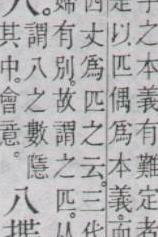 子之本義有難定者
定以匹偶爲本義而
四丈爲匹之云三代
婦有別故謂之匹从
人。謂八之數隱
其中會意。八